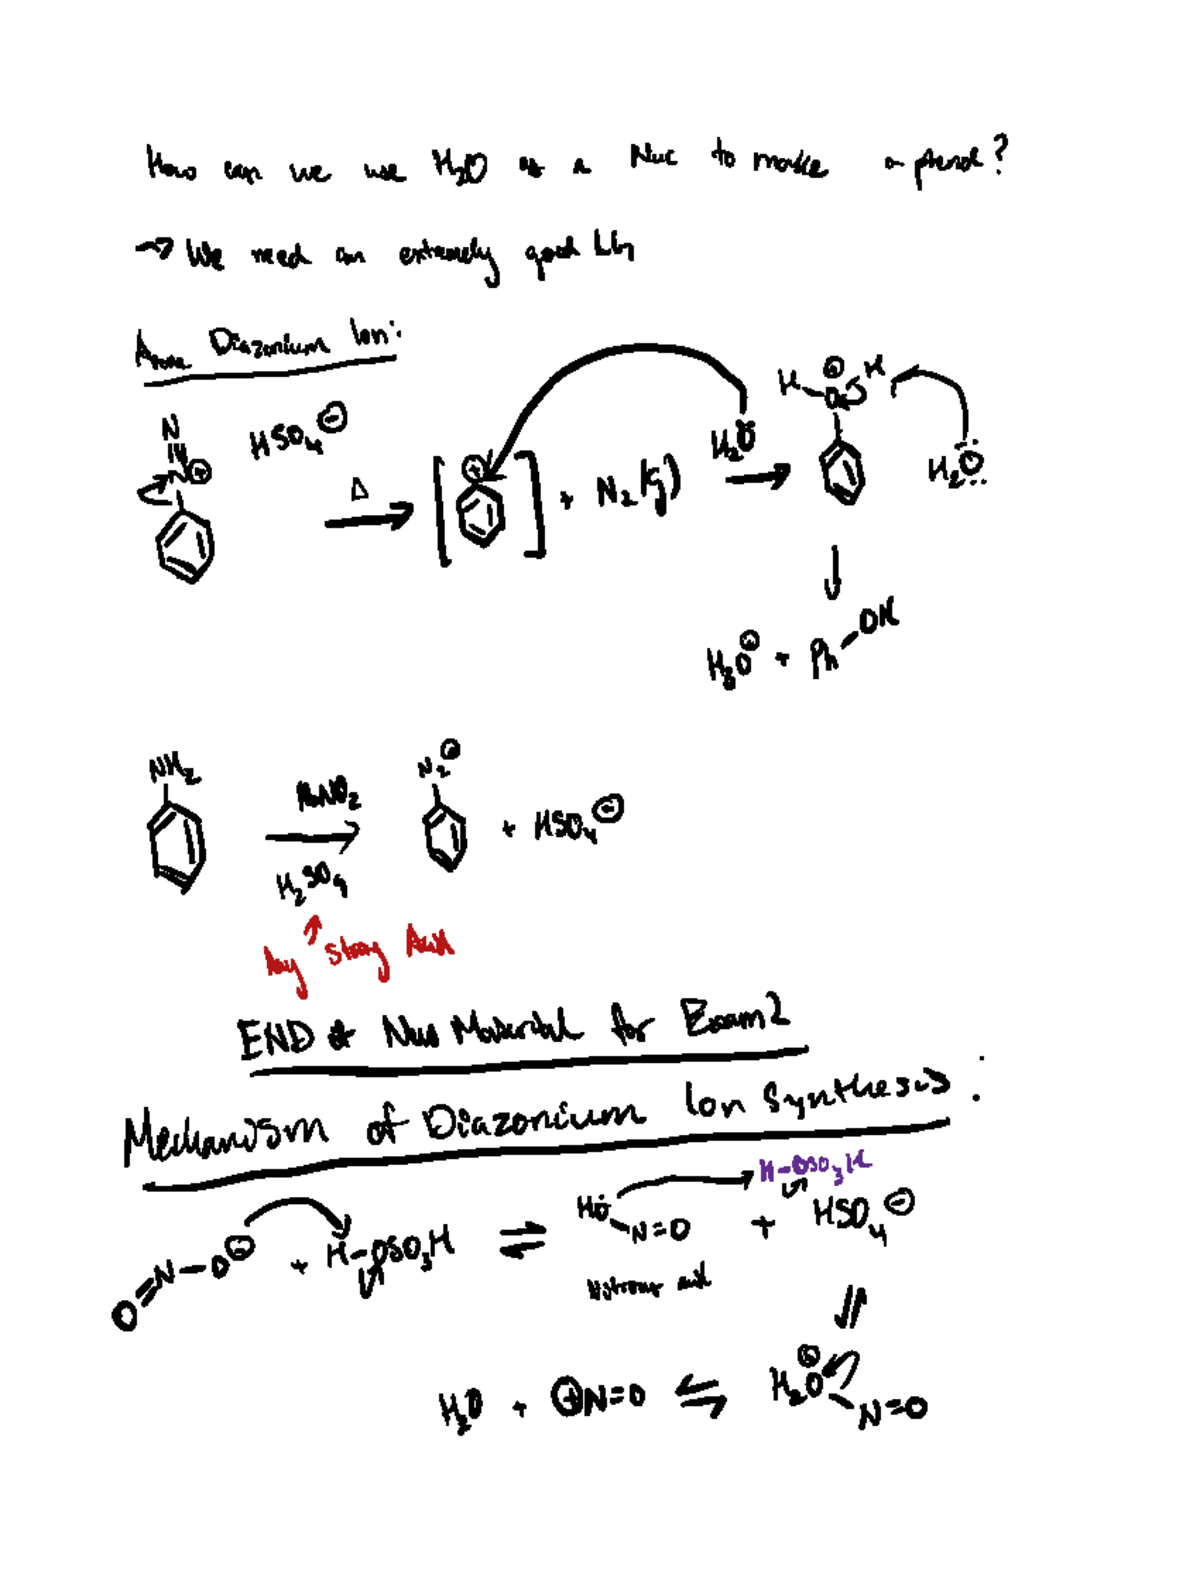 How can we use H₂O as a Nuc to make a phenol?
→ We need an extremely good LG
Diazonium Ion:
N
N⊕
HSO₄⊖
Δ
[⊕] + N₂(g)
H₂O
H O⊕ H
H₂O
H₃O⊕ + Ph OH
NH₂
NaNO₂
H₂SO₄
N₂⊕
+ HSO₄⊖
Any Strong Acid
END of New Material for Exam 2
Mechanism of Diazonium Ion Synthesis:
H-OSO₃H
O=N-O⊖ + H-OSO₃H ⇌ HO N=O + HSO₄⊖
Nitrous acid
H₂O + ⊕N=O ⇌ H₂O⊕ N=O